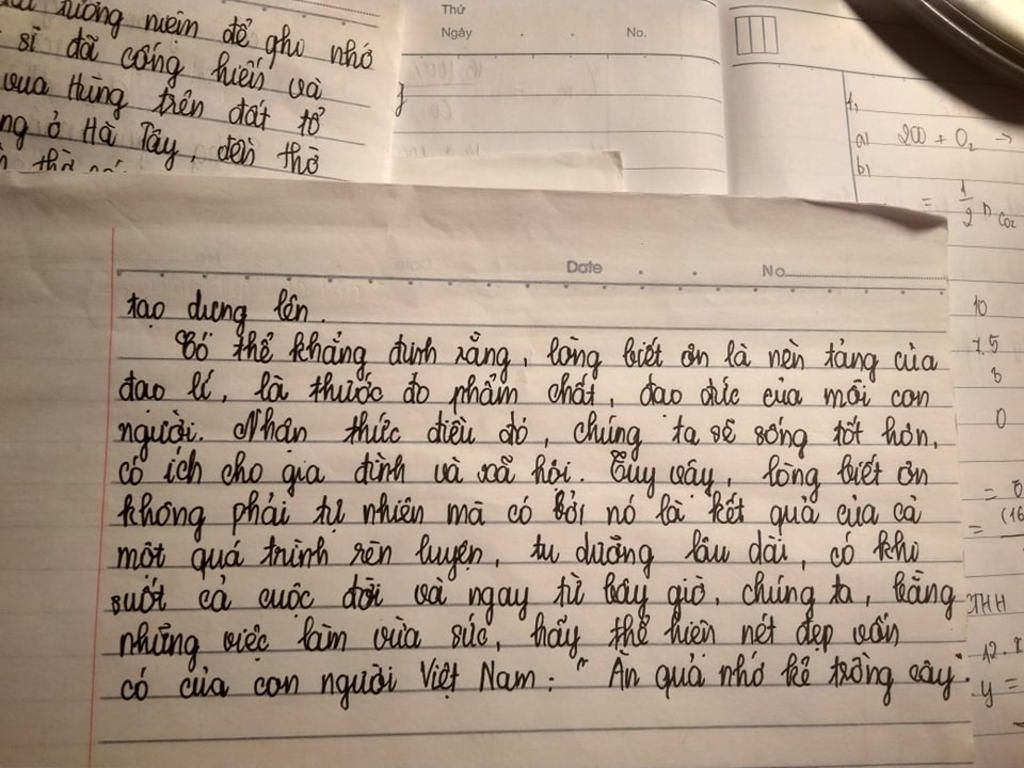 tưởng niệm để ghi nhớ
sĩ đã cống hiến và
vua Hùng trên đất tổ
ng ở Hà Tây, đền thờ
Thứ
Ngày . . No.
1,
a) 2CO + O₂ →
b)
= 1/2 n CO₂
Date . . No.
tạo dựng lên.
Có thể khẳng định rằng, lòng biết ơn là nền tảng của
đạo lí, là thước đo phẩm chất, đạo đức của mỗi con
người. Nhận thức điều đó, chúng ta sẽ sống tốt hơn,
có ích cho gia đình và xã hội. Tuy vậy, lòng biết ơn
không phải tự nhiên mà có bởi nó là kết quả của cả
một quá trình rèn luyện, tu dưỡng lâu dài, có khi
suốt cả cuộc đời và ngay từ bây giờ, chúng ta, bằng
những việc làm vừa sức, hãy thể hiện nét đẹp vốn
có của con người Việt Nam: "Ăn quả nhớ kẻ trồng cây".
10
7.5
3
0
=
= (16
THH
12.
y =